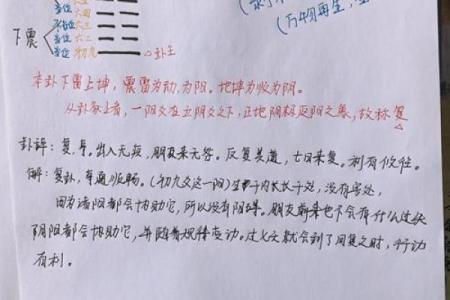 (万物再生,
六四
六三
六二
初九 卦主
下震
本卦下雷上坤,震雷为动,为阳。地坤为收为阴。
从卦象上看,一阳爻在五阴爻之下,正地阴极返阳之象,故称复
卦辞:复,亨。出入无疾,朋友来无咎。反复其道,七日来复。利有攸往。
解:复卦,亨通顺畅。(初九爻这一阳)生于内长于外,没有害处,
因为诸阳都会协助它,所以没有阻碍。朋友前来也不会有什么过失
阴阳都会协助它,并随着规律变动。过七天就会到了回复之时,行动
有利。